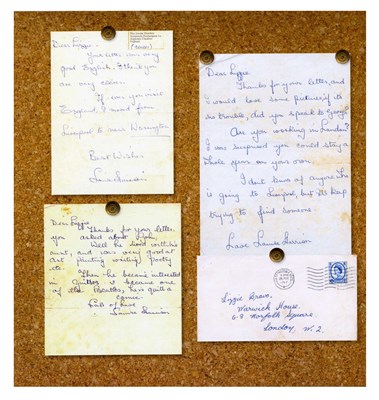 Dear Lizzie.
Your letter was very
good English, I think you
are very clever.
If ever you visit
England, I moved from
Liverpool to near Warrington
Best Wishes
Louise Harrison
Dear Lizzie
Thanks for your letter,
you asked about John,
Well he lived with his
aunt, and was very good at
art painting writing Poetry
etc.
Then he became interested
in Guitar & became one
of the Beatles, he's quite a
Lots of love
Louise Harrison
Dear Lizzie
Thanks for your letter, and
I would love some pictures if its
no trouble, did you speak to George
Are you working in London?
I was surprised you could stay a
whole year on your own.
I don't know of anyone who
is going to Liverpool, but I'll keep
trying to find someone.
Love Louise Harrison
Lizzie Bravo,
Warwick House,
Norfolk Square
London, W. 2.